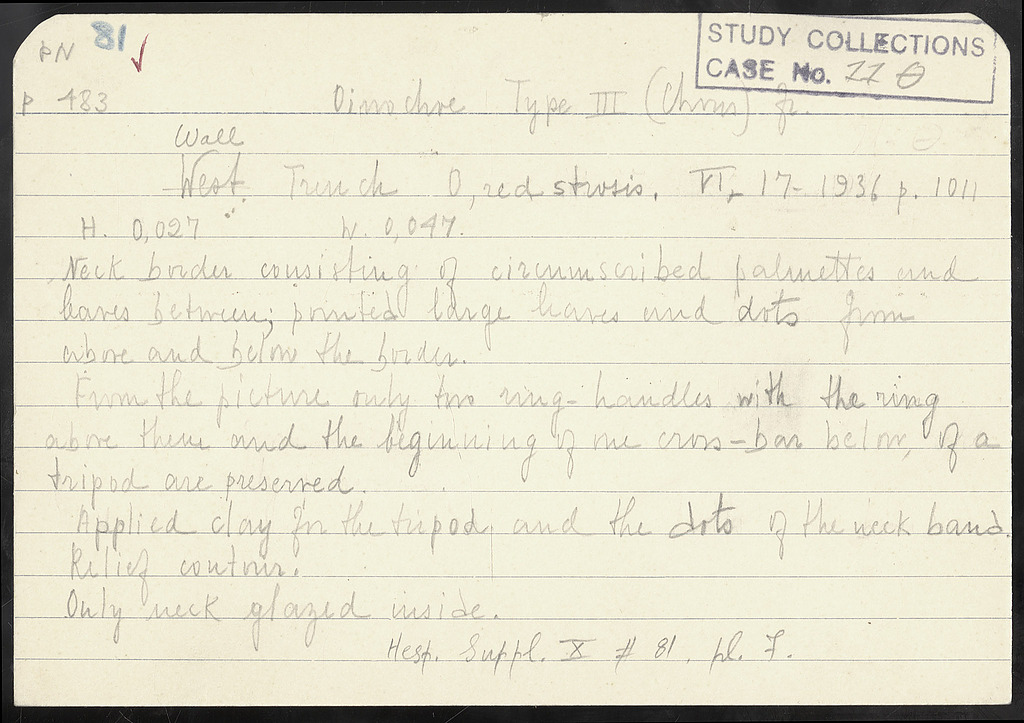 PN 81 ✓
STUDY COLLECTIONS
CASE No. 11 θ
P 483 Oinochoe Type III (Chous) fr.
Wall
West Trench O, red strosis. VI, 17-1936 p. 1011
H. 0,027 W. 0,047.
Neck border consisting of circumscribed palmettes and
leaves between; pointed large leaves and dots from
above and below the border.
From the picture only two ring-handles with the ring
above them and the beginning of one cross-bar below, of a
tripod are preserved.
Applied clay for the tripod, and the dots of the neck band.
Relief contour.
Only neck glazed inside.
Hesp. Suppl. X # 81. pl. 7.